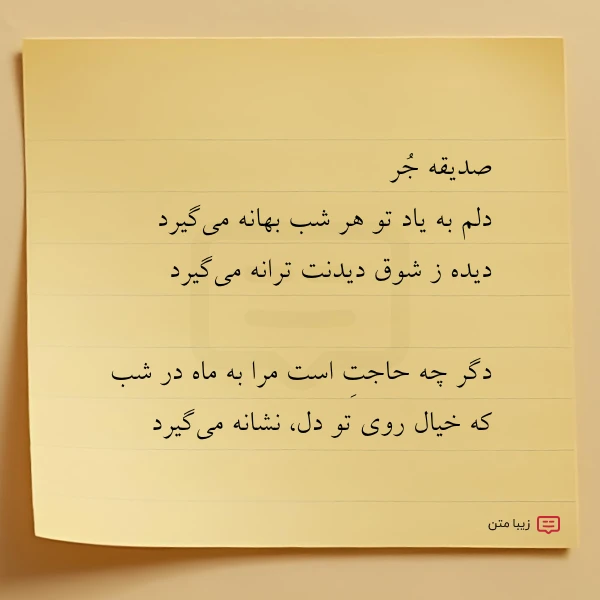 صدیقه جُر
دلم به یاد تو هر شب بهانه می‌گیرد
دیده ز شوق دیدنت ترانه می‌گیرد
دگر چه حاجتِ است مرا به ماه در شب
که خیال روی تو دل، نشانه می‌گیرد
زیبا متن